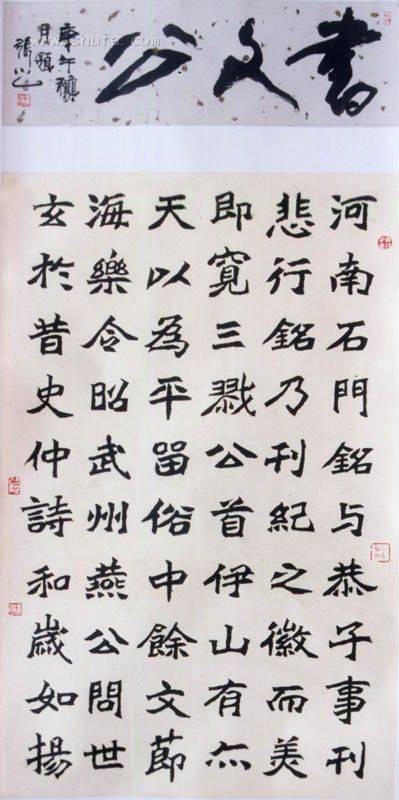 書文公
庚午
河南石門銘与恭子事刊
悲行銘乃刊紀之徽而美
即寬三戮公首伊山有亦
天以為平留俗中餘文節
海樂令昭武州燕公問世
玄於昔史仲詩和歲如揚